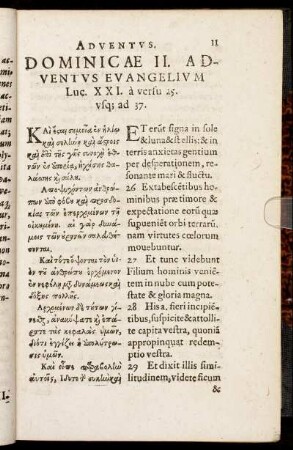 ADVENTVS. 11
DOMINICAE II. AD-
VENTVS EVANGELIVM
Luc. XXI. à versu 25.
vsq; ad 37.
Καὶ ἔςαι σημεῖα ἐν ἡλίῳ
καὶ σελήνῃ καὶ ἄςροις
καὶ ἐπὶ τῆς γῆς συνοχὴ ἐθ-
νῶν ἐν ἀπορίᾳ, ἠχούσης θα-
λάσσης καὶ σάλου.
Ἀποψυχόντων ἀνθρώ-
πων ὑπὸ φόβου καὶ προσδο-
κίας τῶν ἐπερχομένων τῇ
οἰκουμένῃ. αἱ γὰρ δυνά-
μεις τῶν οὐρανῶν σαλευθή-
σονται.
Καὶ τότε ὄψονται τὸν υἱ-
ὸν τοῦ ἀνθρώπου ἐρχόμενον
ἐν νεφέλῃ μετὰ δυνάμεως καὶ
δόξης πολλῆς.
Ἀρχομένων δὲ τούτων γί-
νεσθαι, ἀνακύψατε καὶ ἐπ-
άρατε τὰς κεφαλὰς ὑμῶν,
διότι ἐγγίζει ἡ ἀπολύτρω-
σις ὑμῶν.
Καὶ εἶπε παραβολὴν
αὐτοῖς, ἴδετε τὴν συκῆν καὶ
ET erūt signa in sole
& luna & stellis: & in
terris anxietas gentium
per desperationem, re-
sonante mari & fluctu.
26 Extabescētibus ho-
minibus præ timore &
expectatione eorū quæ
supueniēt orbi terrarū.
nam virtutes cœlorum
mouebuntur.
27 Et tunc videbunt
Filium hominis veniē-
tem in nube cum pote-
state & gloria magna.
28 His a. fieri incipiē-
tibus, suspicite & attolli-
te capita vestra, quoniā
appropinquat redem-
ptio vestra.
29 Et dixit illis simi-
litudinem, videte ficum
&